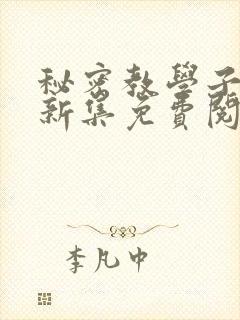 秘密教學子
新集免費閱
李凡中